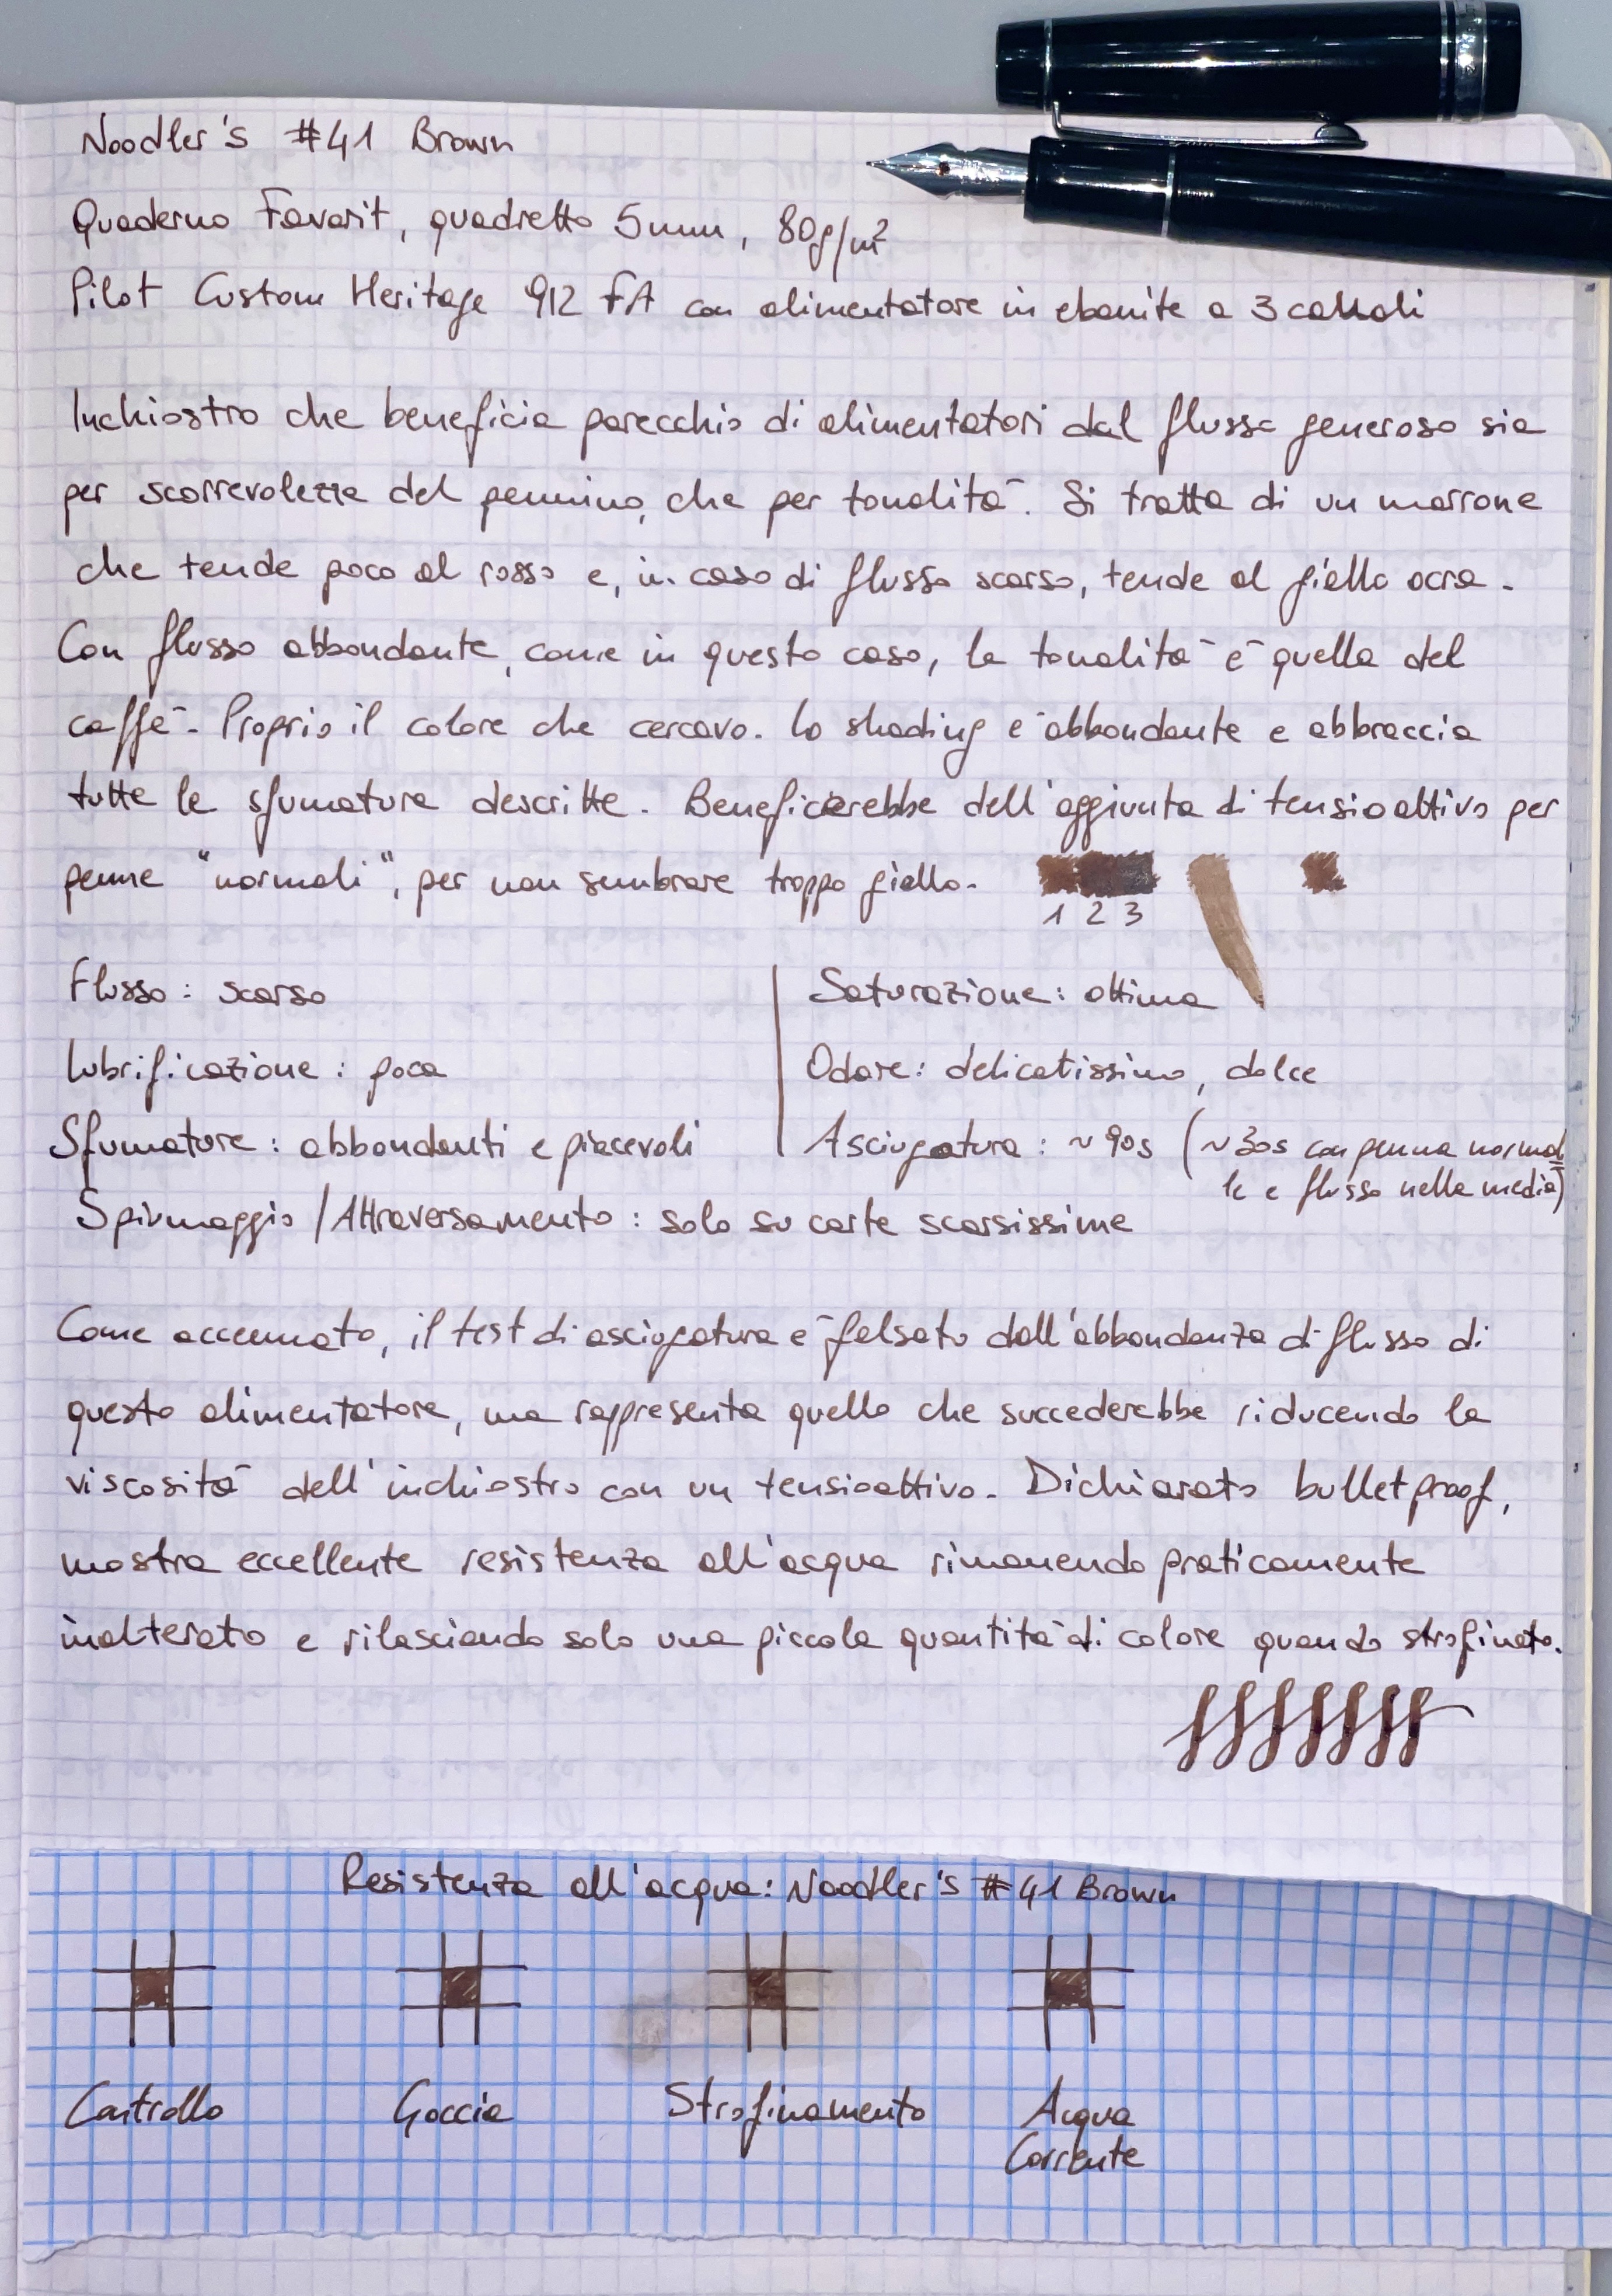 Noodler's #41 Brown
Quaderno Favorit, quadretto 5mm, 80g/m²
Pilot Custom Heritage 912 FA con alimentatore in ebanite a 3 canali
Inchiostro che beneficia parecchio di alimentatori dal flusso generoso sia
per scorrevolezza del pennino, che per tonalità. Si tratta di un marrone
che tende poco al rosso e, in caso di flusso scarso, tende al giallo ocra.
Con flusso abbondante, come in questo caso, la tonalità è quella del
caffè. Proprio il colore che cercavo. Lo shading è abbondante e abbraccia
tutte le sfumature descritte. Beneficierebbe dell'aggiunta di tensioattivo per
penne "normali", per non sembrare troppo giallo.
1 2 3
Flusso: scarso
Lubrificazione: poca
Sfumature: abbondanti e piacevoli
Saturazione: ottima
Odore: delicatissimo, dolce
Asciugatura: ~90s (~30s con penna norma
le e flusso nella media)
Spiumaggio/Attraversamento: solo su carte scarsissime
Come accennato, il test di asciugatura è falsato dall'abbondanza di flusso di
questo alimentatore, ma rappresenta quello che succederebbe riducendo la
viscosità dell'inchiostro con un tensioattivo. Dichiarato bulletproof,
mostra eccellente resistenza all'acqua rimanendo praticamente
inalterato e rilasciando solo una piccola quantità di colore quando strofinato.
Resistenza all'acqua: Noodler's #41 Brown
Controllo
Goccia
Strofinamento
Acqua
Corrente